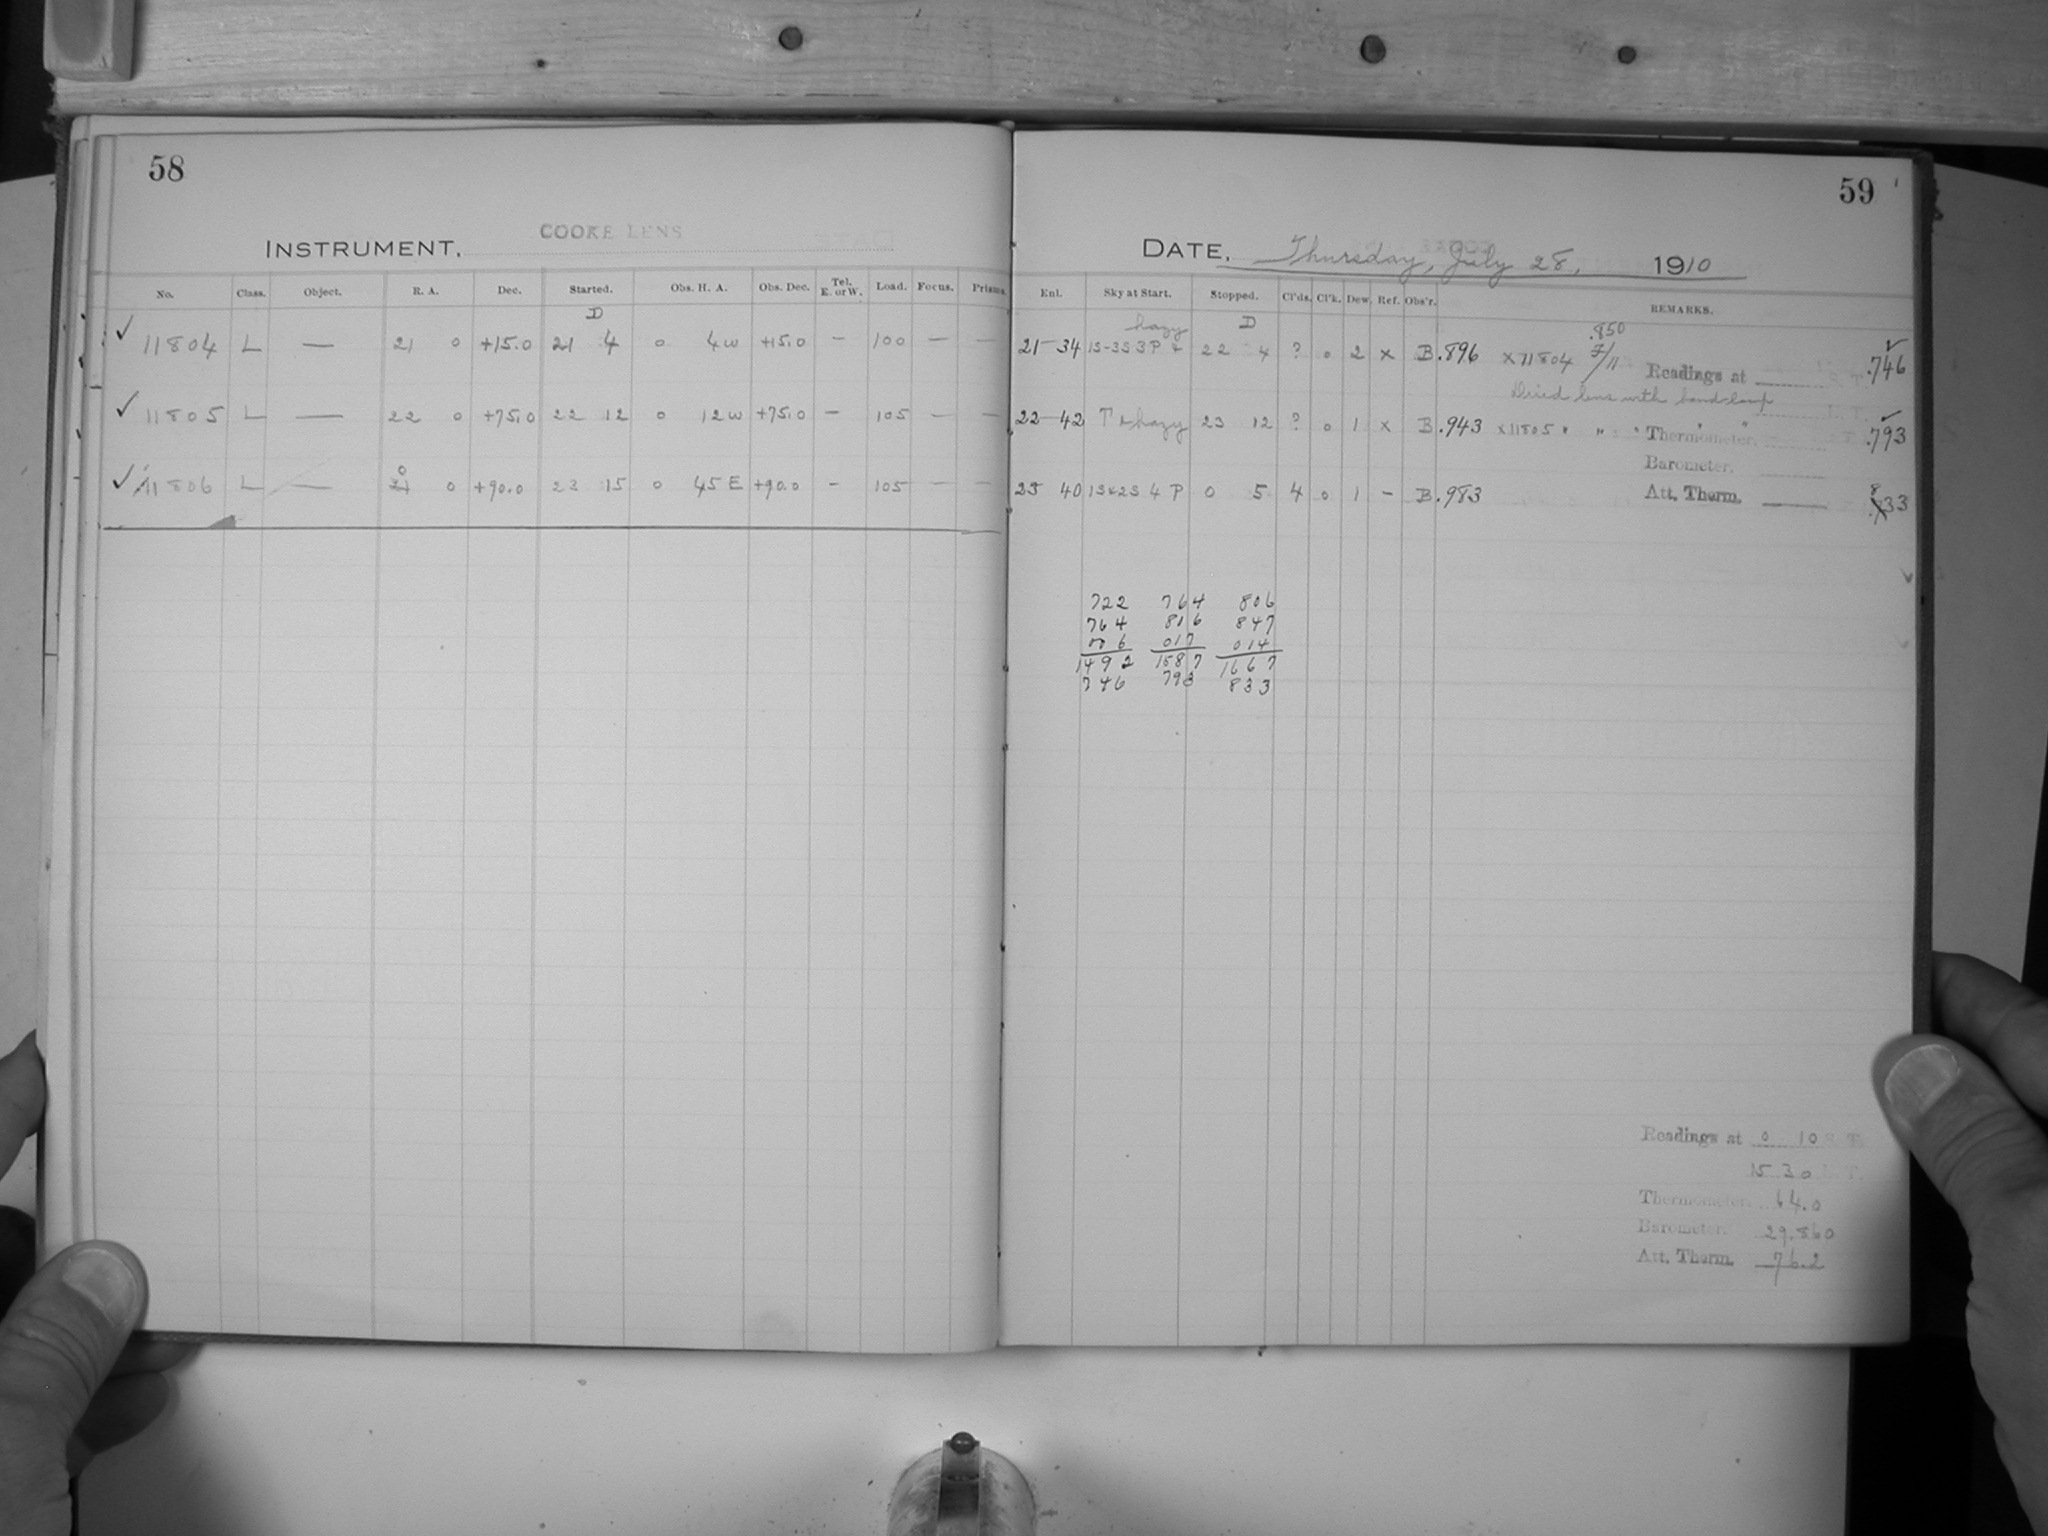 58
INSTRUMENT. COOKE LENS
No. Class. Object. R. A. Dec. Started. Obs. H. A. Obs. Dec. Tel. E. or W. Load. Focus. Prisms.
D
✓ 11804 L — 21 0 +15.0 21 4 0 4 W +15.0 — 100 — —
✓ 11805 L — 22 0 +75.0 22 12 0 12 W +75.0 — 105 — —
0
✓ 11806 L — 21 0 +90.0 23 15 0 45 E +90.0 — 105 — —
59
DATE, Thursday, July 28, 1910
Enl. Sky at Start. Stopped. Cl'ds. Cl'k. Dew. Ref. Obs'r. REMARKS.
hazy D .850
21 — 34 1S-3S 3P + 22 4 ? 0 2 x B .896 x 11804 7/11 Readings at .746
Dried lens with hand lamp
22 — 42 T + hazy 23 12 ? 0 1 x B .943 x 11805 " " " " " Thermometer. .793
Barometer.
23 40 1Sx2S 4 P 0 5 4 0 1 — B .983 Att. Therm. .833
8
722 764 806
764 816 847
006 017 014
1492 1587 1667
746 793 833
Readings at 0 10 S. T.
15 30 L. T.
Thermometer. 64.0
Barometer. 29.860
Att. Therm. 76.2